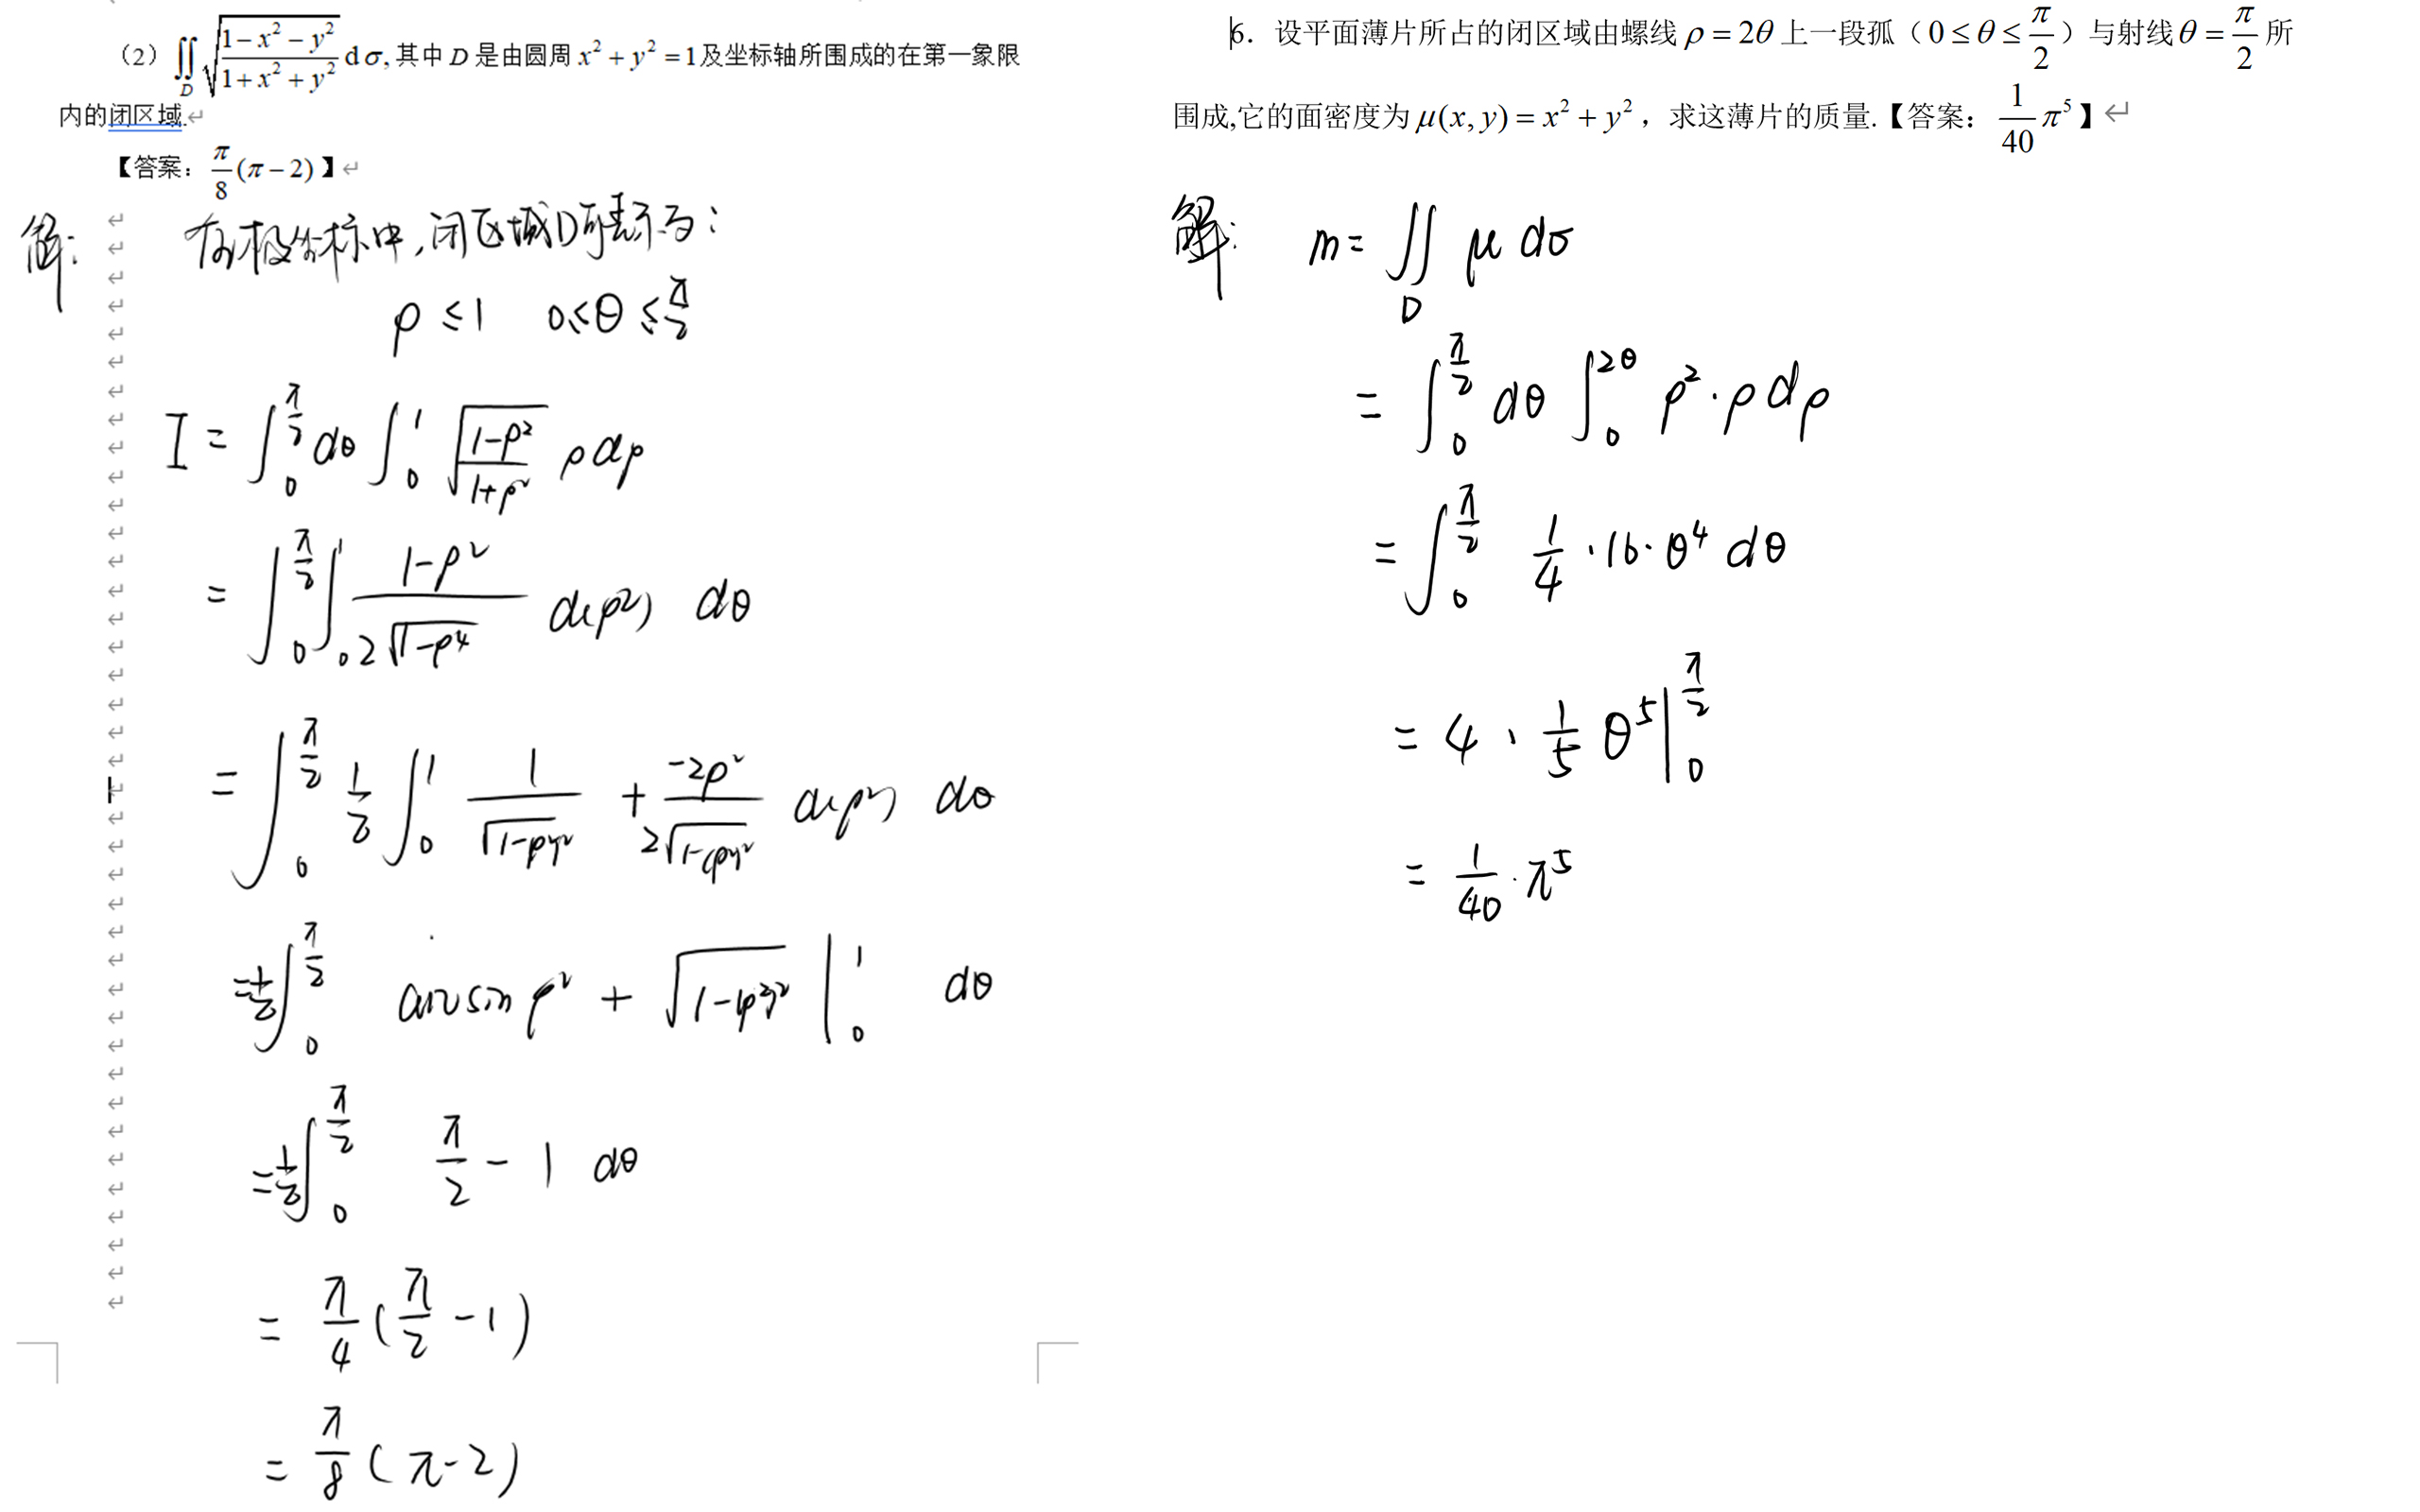 （2）∬_D √((1−x²−y²)/(1+x²+y²)) dσ, 其中 D 是由圆周 x²+y²=1及坐标轴所围成的在第一象限
内的闭区域.
【答案： π/8 (π−2)】
解: 在极坐标中,闭区域D可表示为:
ρ≤1 0≤θ≤π/2
I = ∫_0^{π/2} dθ ∫_0^1 √((1-ρ²)/(1+ρ²)) ρdρ
= ∫_0^{π/2} ∫_0^1 (1-ρ²)/(2√(1-ρ⁴)) d(ρ²) dθ
= ∫_0^{π/2} 1/2 ∫_0^1 1/√(1-(ρ²)²) + (-2ρ²)/(2√(1-(ρ²)²)) d(ρ²) dθ
= 1/2 ∫_0^{π/2} arcsin ρ² + √(1-(ρ²)²) |_0^1 dθ
= 1/2 ∫_0^{π/2} π/2 - 1 dθ
= π/4 (π/2 - 1)
= π/8 (π-2)
6. 设平面薄片所占的闭区域由螺线 ρ=2θ 上一段弧（0≤θ≤π/2）与射线θ=π/2 所
围成,它的面密度为 μ(x,y)=x²+y²，求这薄片的质量.【答案： 1/40 π⁵】
解: m= ∬_D μ dσ
= ∫_0^{π/2} dθ ∫_0^{2θ} ρ²·ρdρ
= ∫_0^{π/2} 1/4 ·16·θ⁴ dθ
= 4 · 1/5 θ⁵ |_0^{π/2}
= 1/40 · π⁵